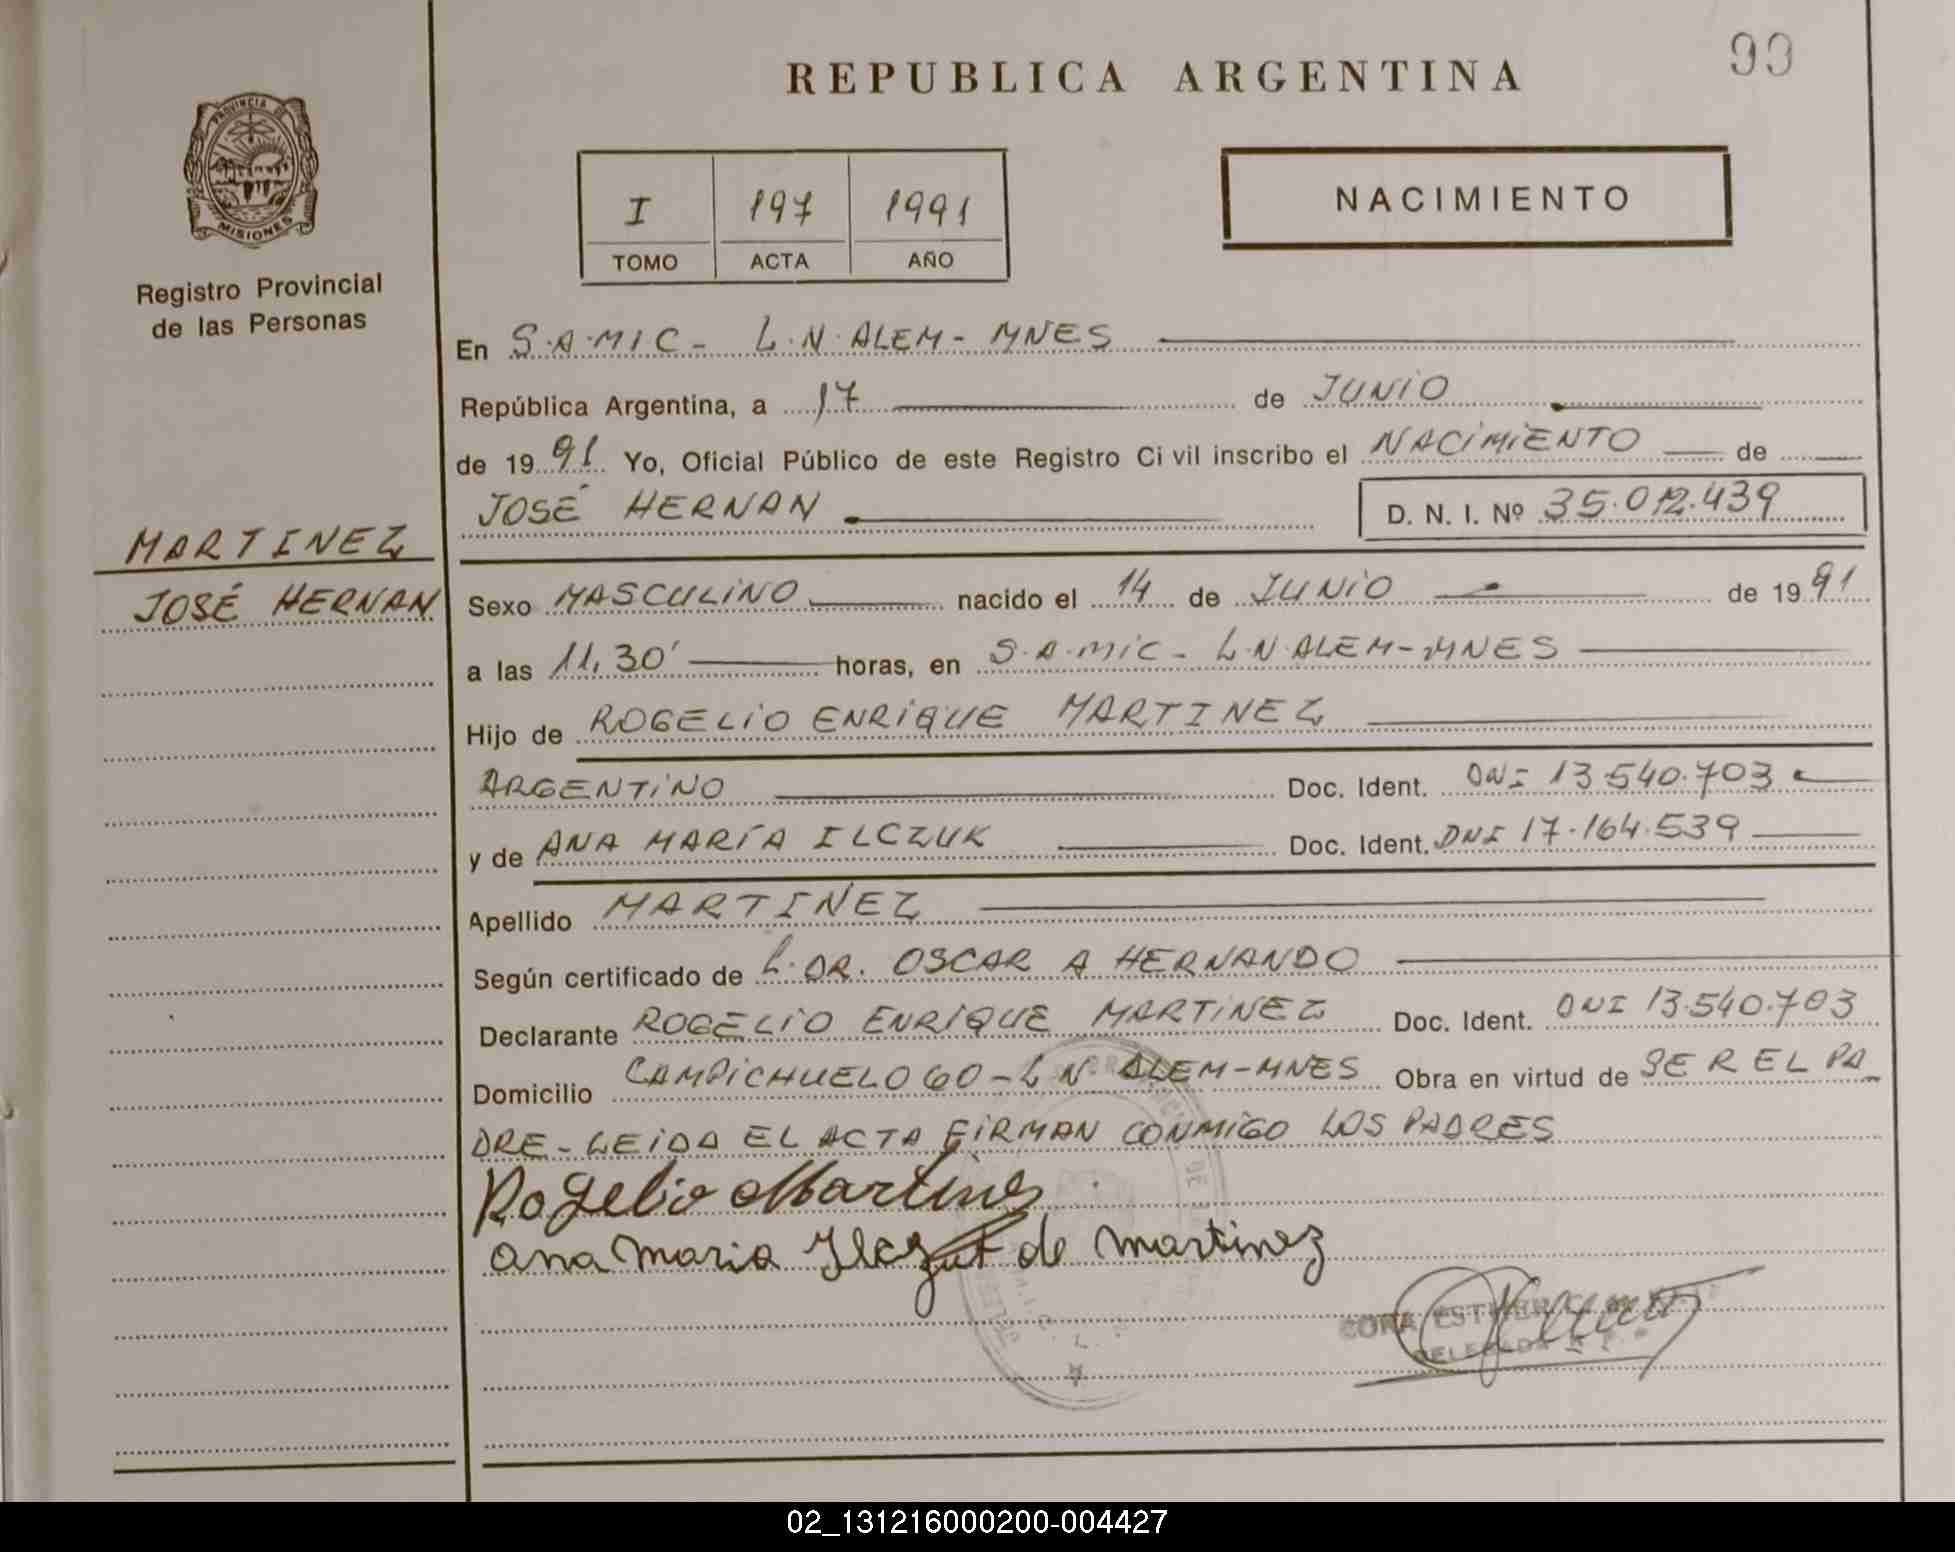 99
REPUBLICA ARGENTINA
PROVINCIA DE
MISIONES
Registro Provincial
de las Personas
I 197 1991
TOMO ACTA AÑO
NACIMIENTO
En S.A.MIC - L.N. ALEM - MNES
República Argentina, a 17 de JUNIO
de 1991 Yo, Oficial Público de este Registro Civil inscribo el NACIMIENTO de
JOSÉ HERNAN D. N. I. Nº 35.012.439
MARTINEZ
JOSÉ HERNAN
Sexo MASCULINO nacido el 14 de JUNIO de 1991
a las 11,30' horas, en S.A.MIC - L.N. ALEM - MNES
Hijo de ROGELIO ENRIQUE MARTINEZ
ARGENTINO Doc. Ident. DNI 13.540.703
y de ANA MARÍA ILCZUK Doc. Ident. DNI 17.164.539
Apellido MARTINEZ
Según certificado de L. DR. OSCAR A HERNANDO
Declarante ROGELIO ENRIQUE MARTINEZ Doc. Ident. DNI 13.540.703
Domicilio CAMPICHUELO 60 - L N ALEM - MNES Obra en virtud de SER EL PA_
DRE - LEIDA EL ACTA FIRMAN CONMIGO LOS PADRES
Rogelio Martinez
Ana Maria Ilczuk de Martinez
CORA ESTHER
DELEGADA
02_131216000200-004427